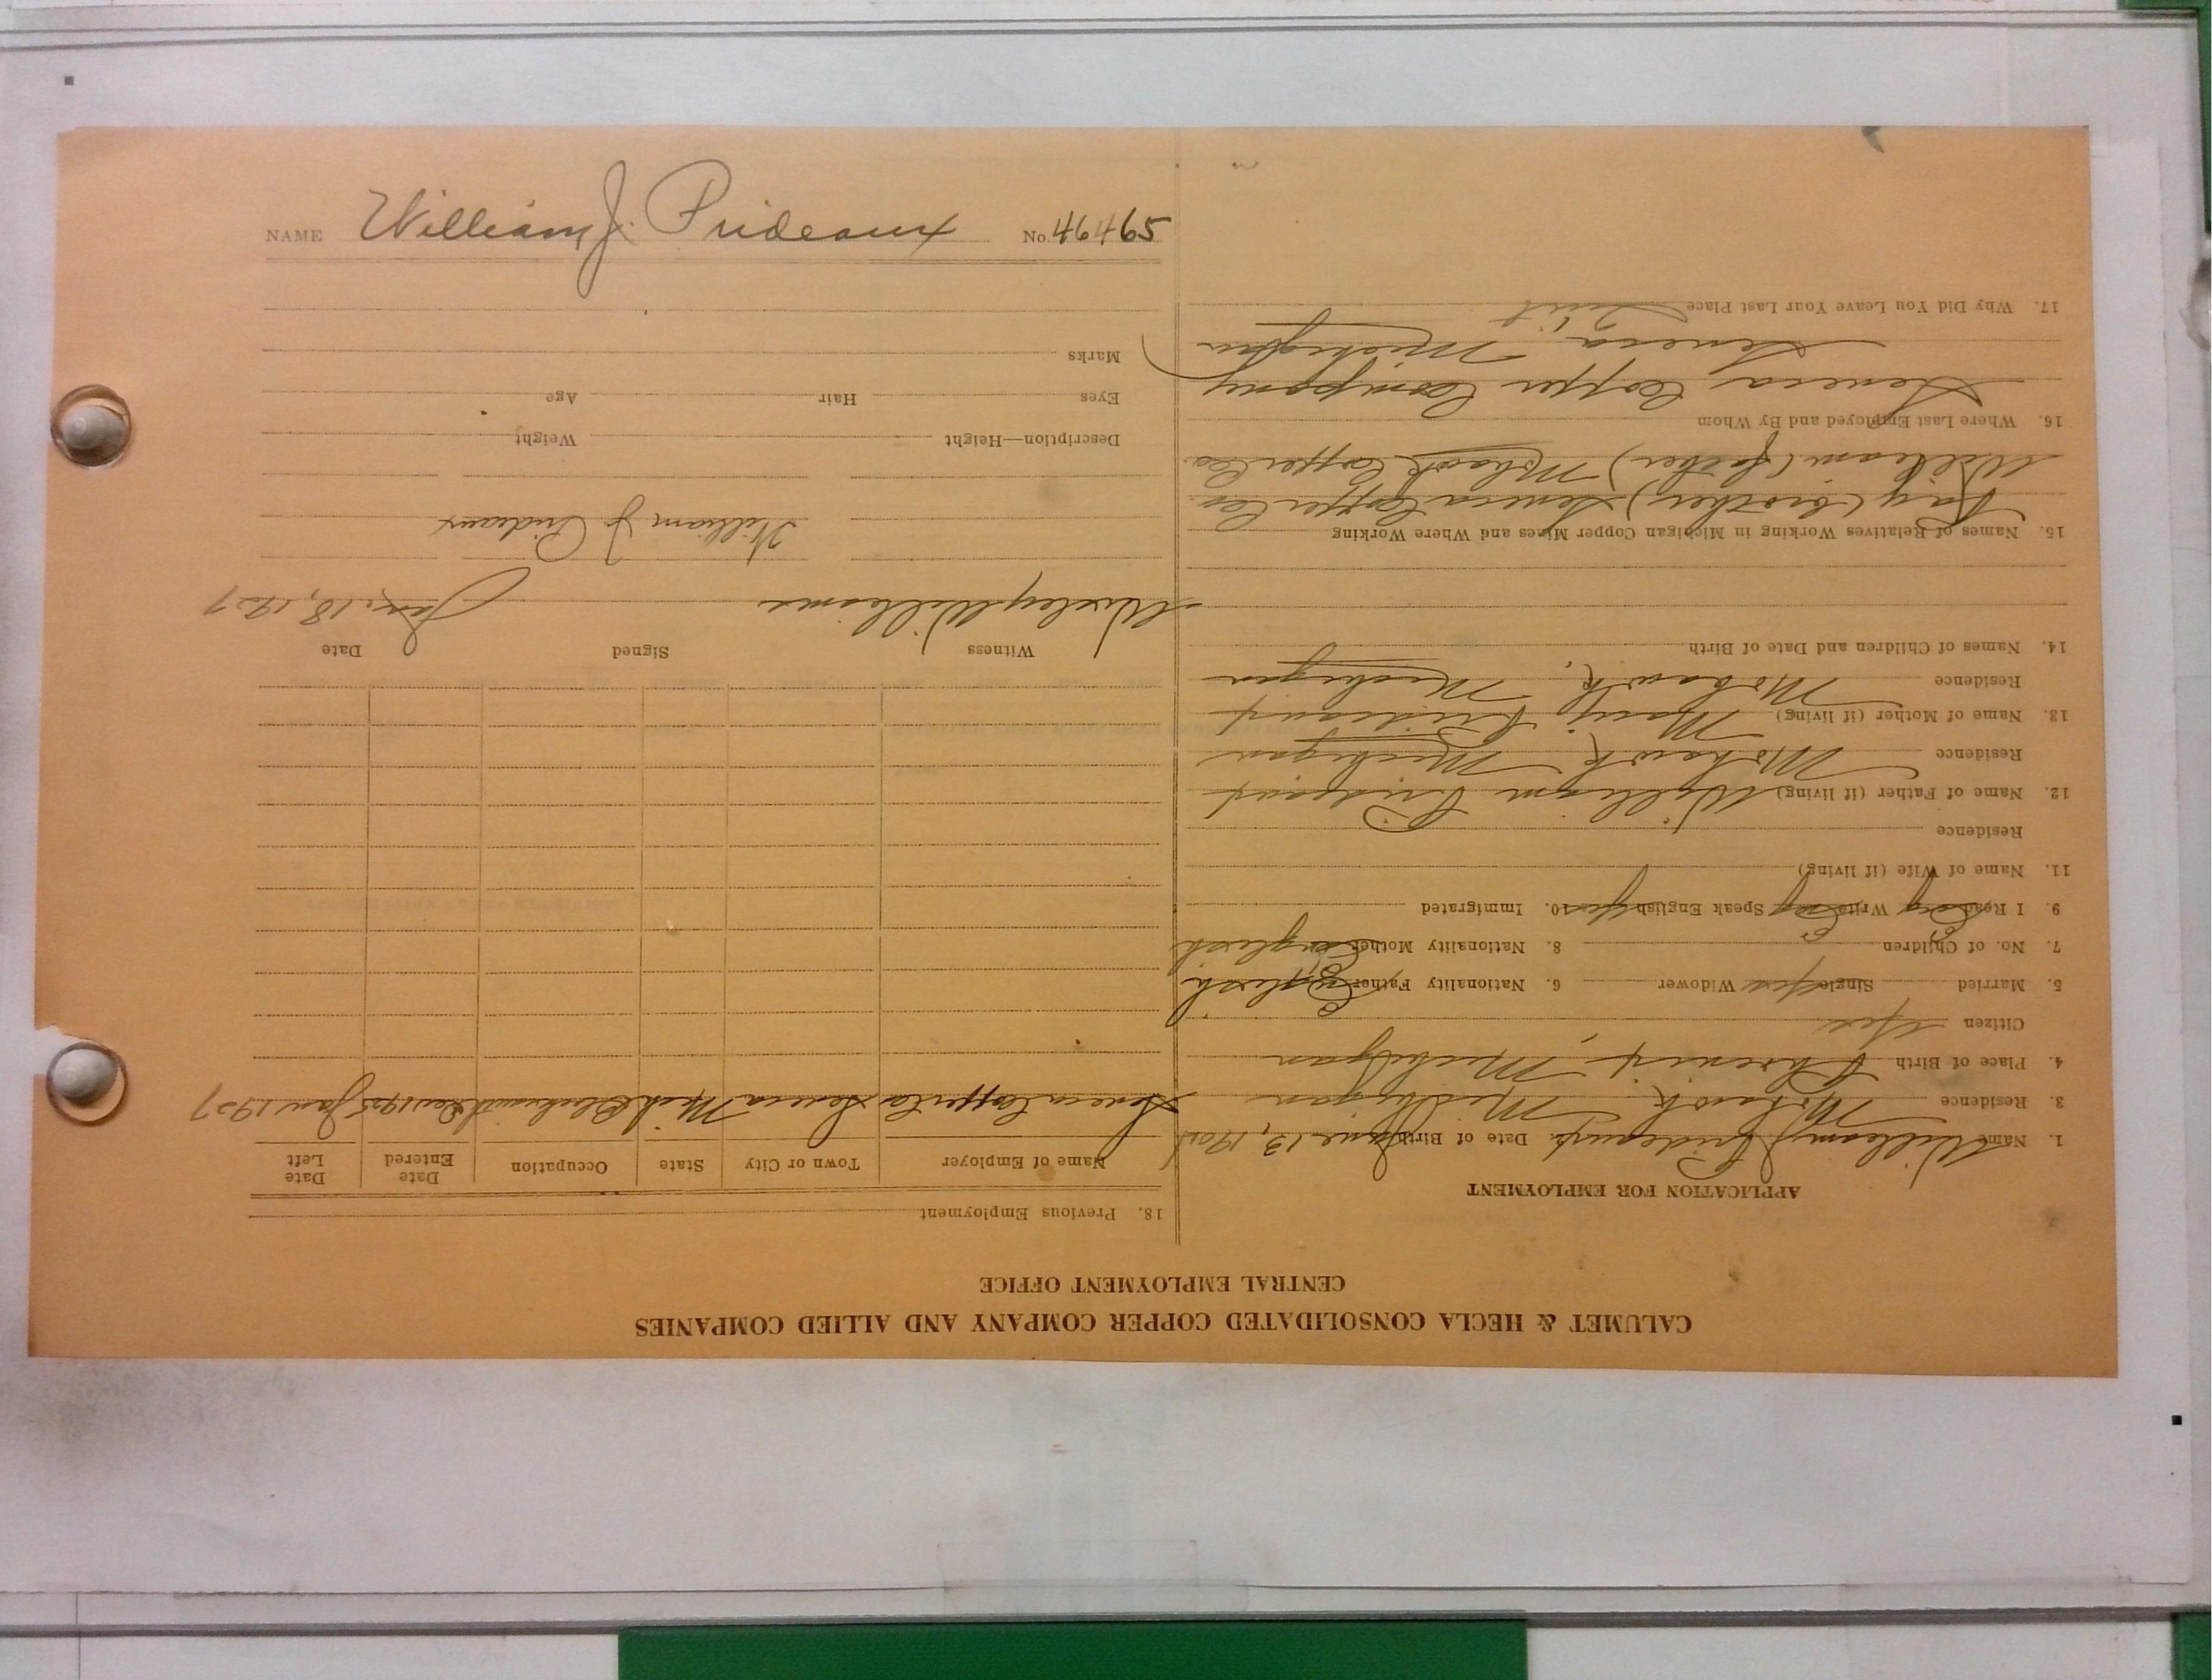 NAME William J. Prideaux No. 46465
CALUMET & HECLA CONSOLIDATED COPPER COMPANY AND ALLIED COMPANIES
CENTRAL EMPLOYMENT OFFICE
APPLICATION FOR EMPLOYMENT
1. Name William J Prideaux Date of Birth June 13,
3. Residence Mohawk Michigan
4. Place of Birth Phoenix, Michigan
Citizen Yes
5. Married Single yes Widower 6. Nationality Father English
7. No. of Children 8. Nationality Mother English
9. I Read Eng Write Eng Speak English yes 10. Immigrated
11. Name of Wife (if living)
Residence
12. Name of Father (if living) William Prideaux
Residence Mohawk Michigan
13. Name of Mother (if living) Mary Prideaux
Residence Mohawk, Michigan
14. Names of Children and Date of Birth
15. Names of Relatives Working in Michigan Copper Mines and Where Working
(brother) Seneca Copper Co.
William (father) Mohawk Copper Co.
16. Where Last Employed and By Whom
Seneca Copper Company
Seneca Michigan
17. Why Did You Leave Your Last Place Quit
18. Previous Employment
Name of Employer Town or City State Occupation Date Entered Date Left
Seneca Copper Co Seneca Mich Blacksmith Dec 1925 Jan 1927
Witness Signed Date
Wesley Williams Jan. 18, 1927
William J Prideaux
Description—Height Weight
Eyes Hair Age
Marks